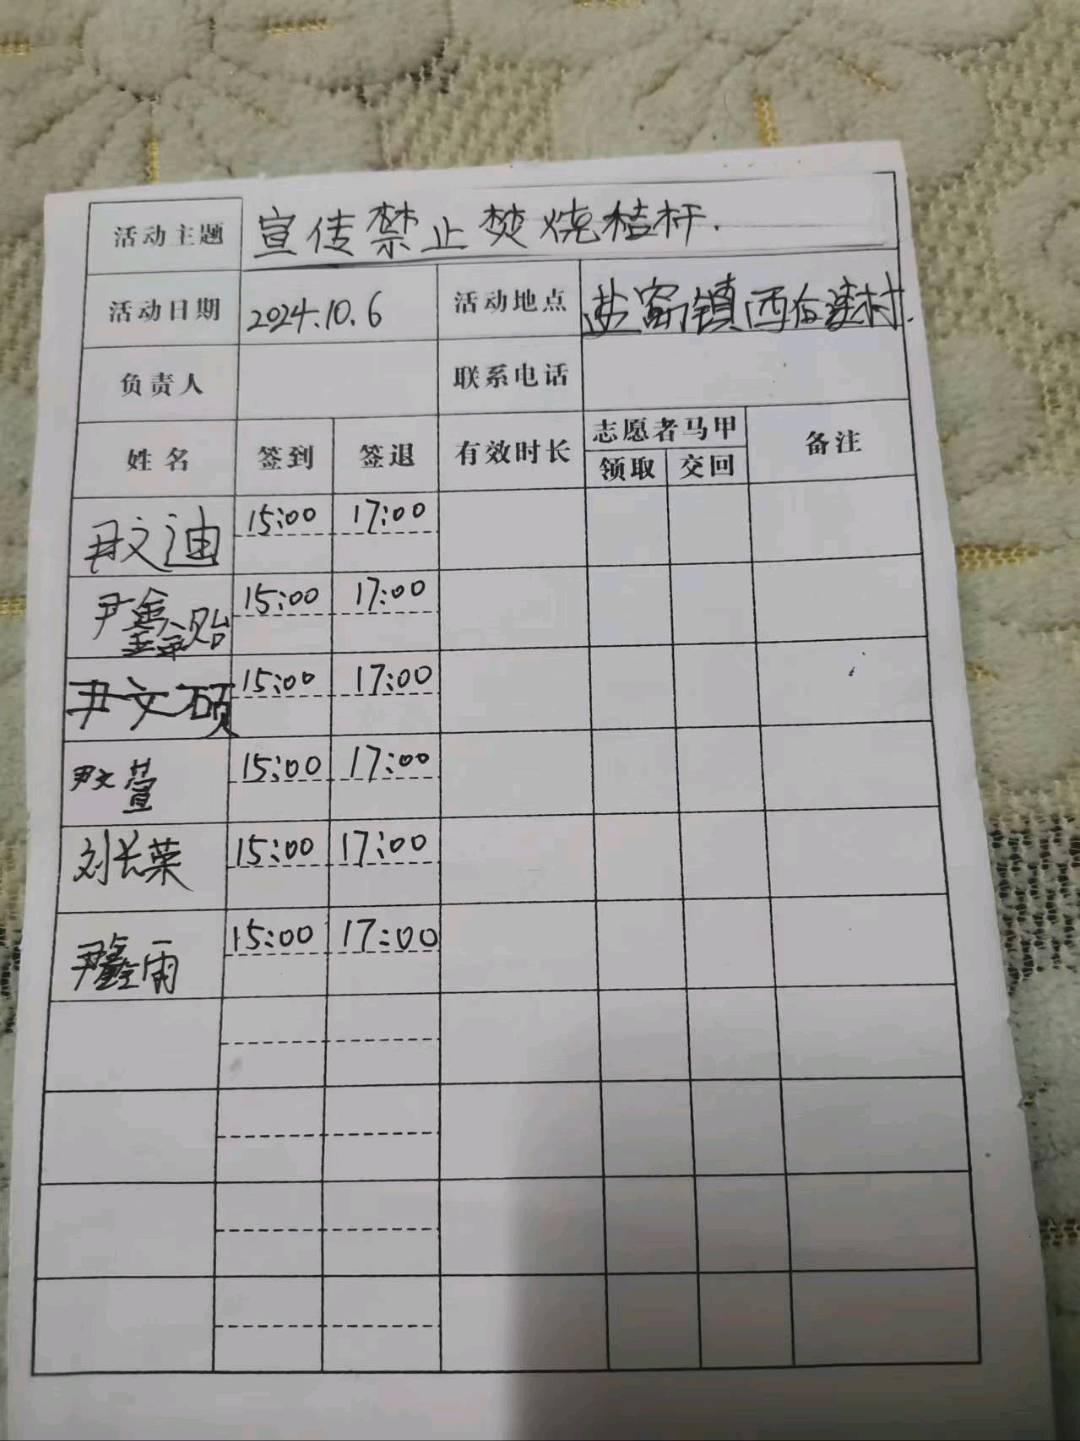 活动主题 宣传禁止焚烧秸秆.
活动日期 2024.10.6 活动地点 盐窝镇西村.
负责人 联系电话
姓名 签到 签退 有效时长 志愿者马甲 备注
领取 交回
尹文迪 15:00 17:00
尹鑫贻 15:00 17:00
尹文硕 15:00 17:00
尹文萱 15:00 17:00
刘长荣 15:00 17:00
尹鑫雨 15:00 17:00